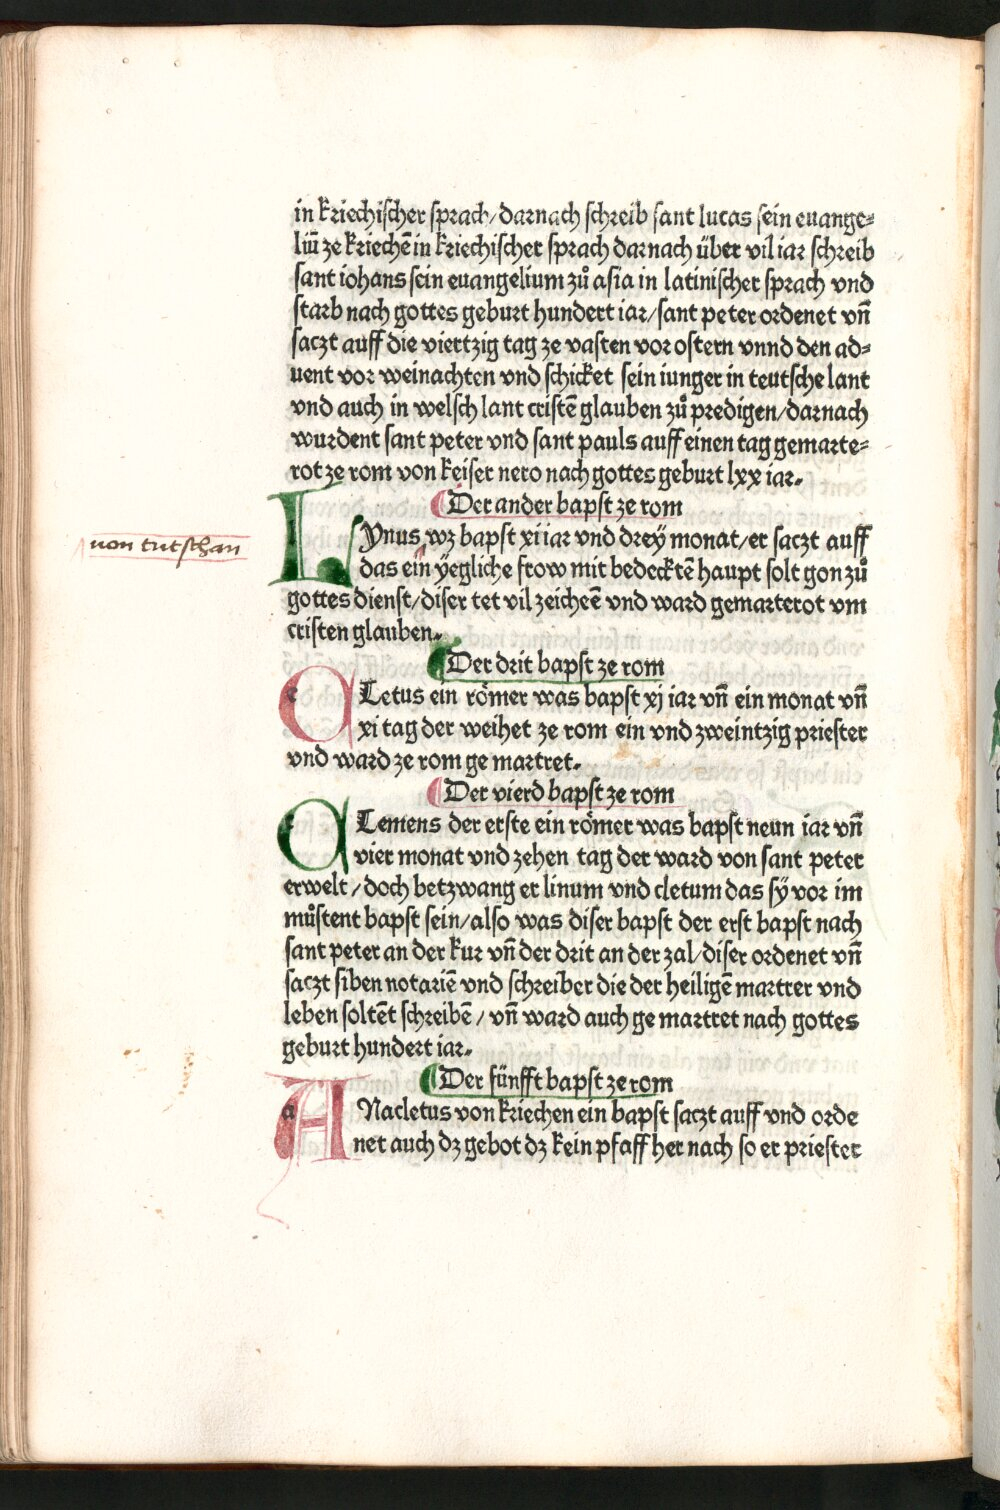 in kriechischer sprach/darnach schreib sant lucas sein euange⸗
liū ze kriechē in kriechischer sprach darnach über vil iar schreib
sant iohans sein euangelium zů asia in latinischer sprach vnd
starb nach gottes geburt hundert iar/sant peter ordenet vn̄
saczt auff die viertzig tag ze vasten vor ostern vnnd den ad⸗
uent vor weinachten vnd schicket sein iunger in teutsche lant
vnd auch in welsch lant cristē glauben zů predigen/darnach
wurdent sant peter vnd sant pauls auff einen tag gemarte⸗
rot ze rom von keiser nero nach gottes geburt lxx iar.
Der ander bapst ze rom
LYnus wz bapst xii iar vnd drey monat/er saczt auff
von tutschan
das ein ÿegliche frow mit bedecktē haupt solt gon zů
gottes dienst/diser tet vil zeicheē vnd ward gemarterot vm
cristen glauben.
Der drit bapst ze rom
CLetus ein römer was bapst xj iar vn̄ ein monat vn̄
xi tag der weihet ze rom ein vnd zweintzig priester
vnd ward ze rom ge martret.
Der vierd bapst ze rom
CLemens der erste ein römer was bapst neun iar vn̄
vier monat vnd zehen tag der ward von sant peter
erwelt/doch betzwang er linum vnd cletum das sÿ vor im
můstent bapst sein/also was diser bapst der erst bapst nach
sant peter an der kur vn̄ der drit an der zal/diser ordenet vn̄
saczt siben notariē vnd schreiber die der heiligē martrer vnd
leben soltēt schreibē/vn̄ ward auch ge martret nach gottes
geburt hundert iar.
Der fünfft bapst ze rom
ANacletus von kriechen ein bapst saczt auff vnd orde
net auch dz gebot dz kein pfaff her nach so er priester